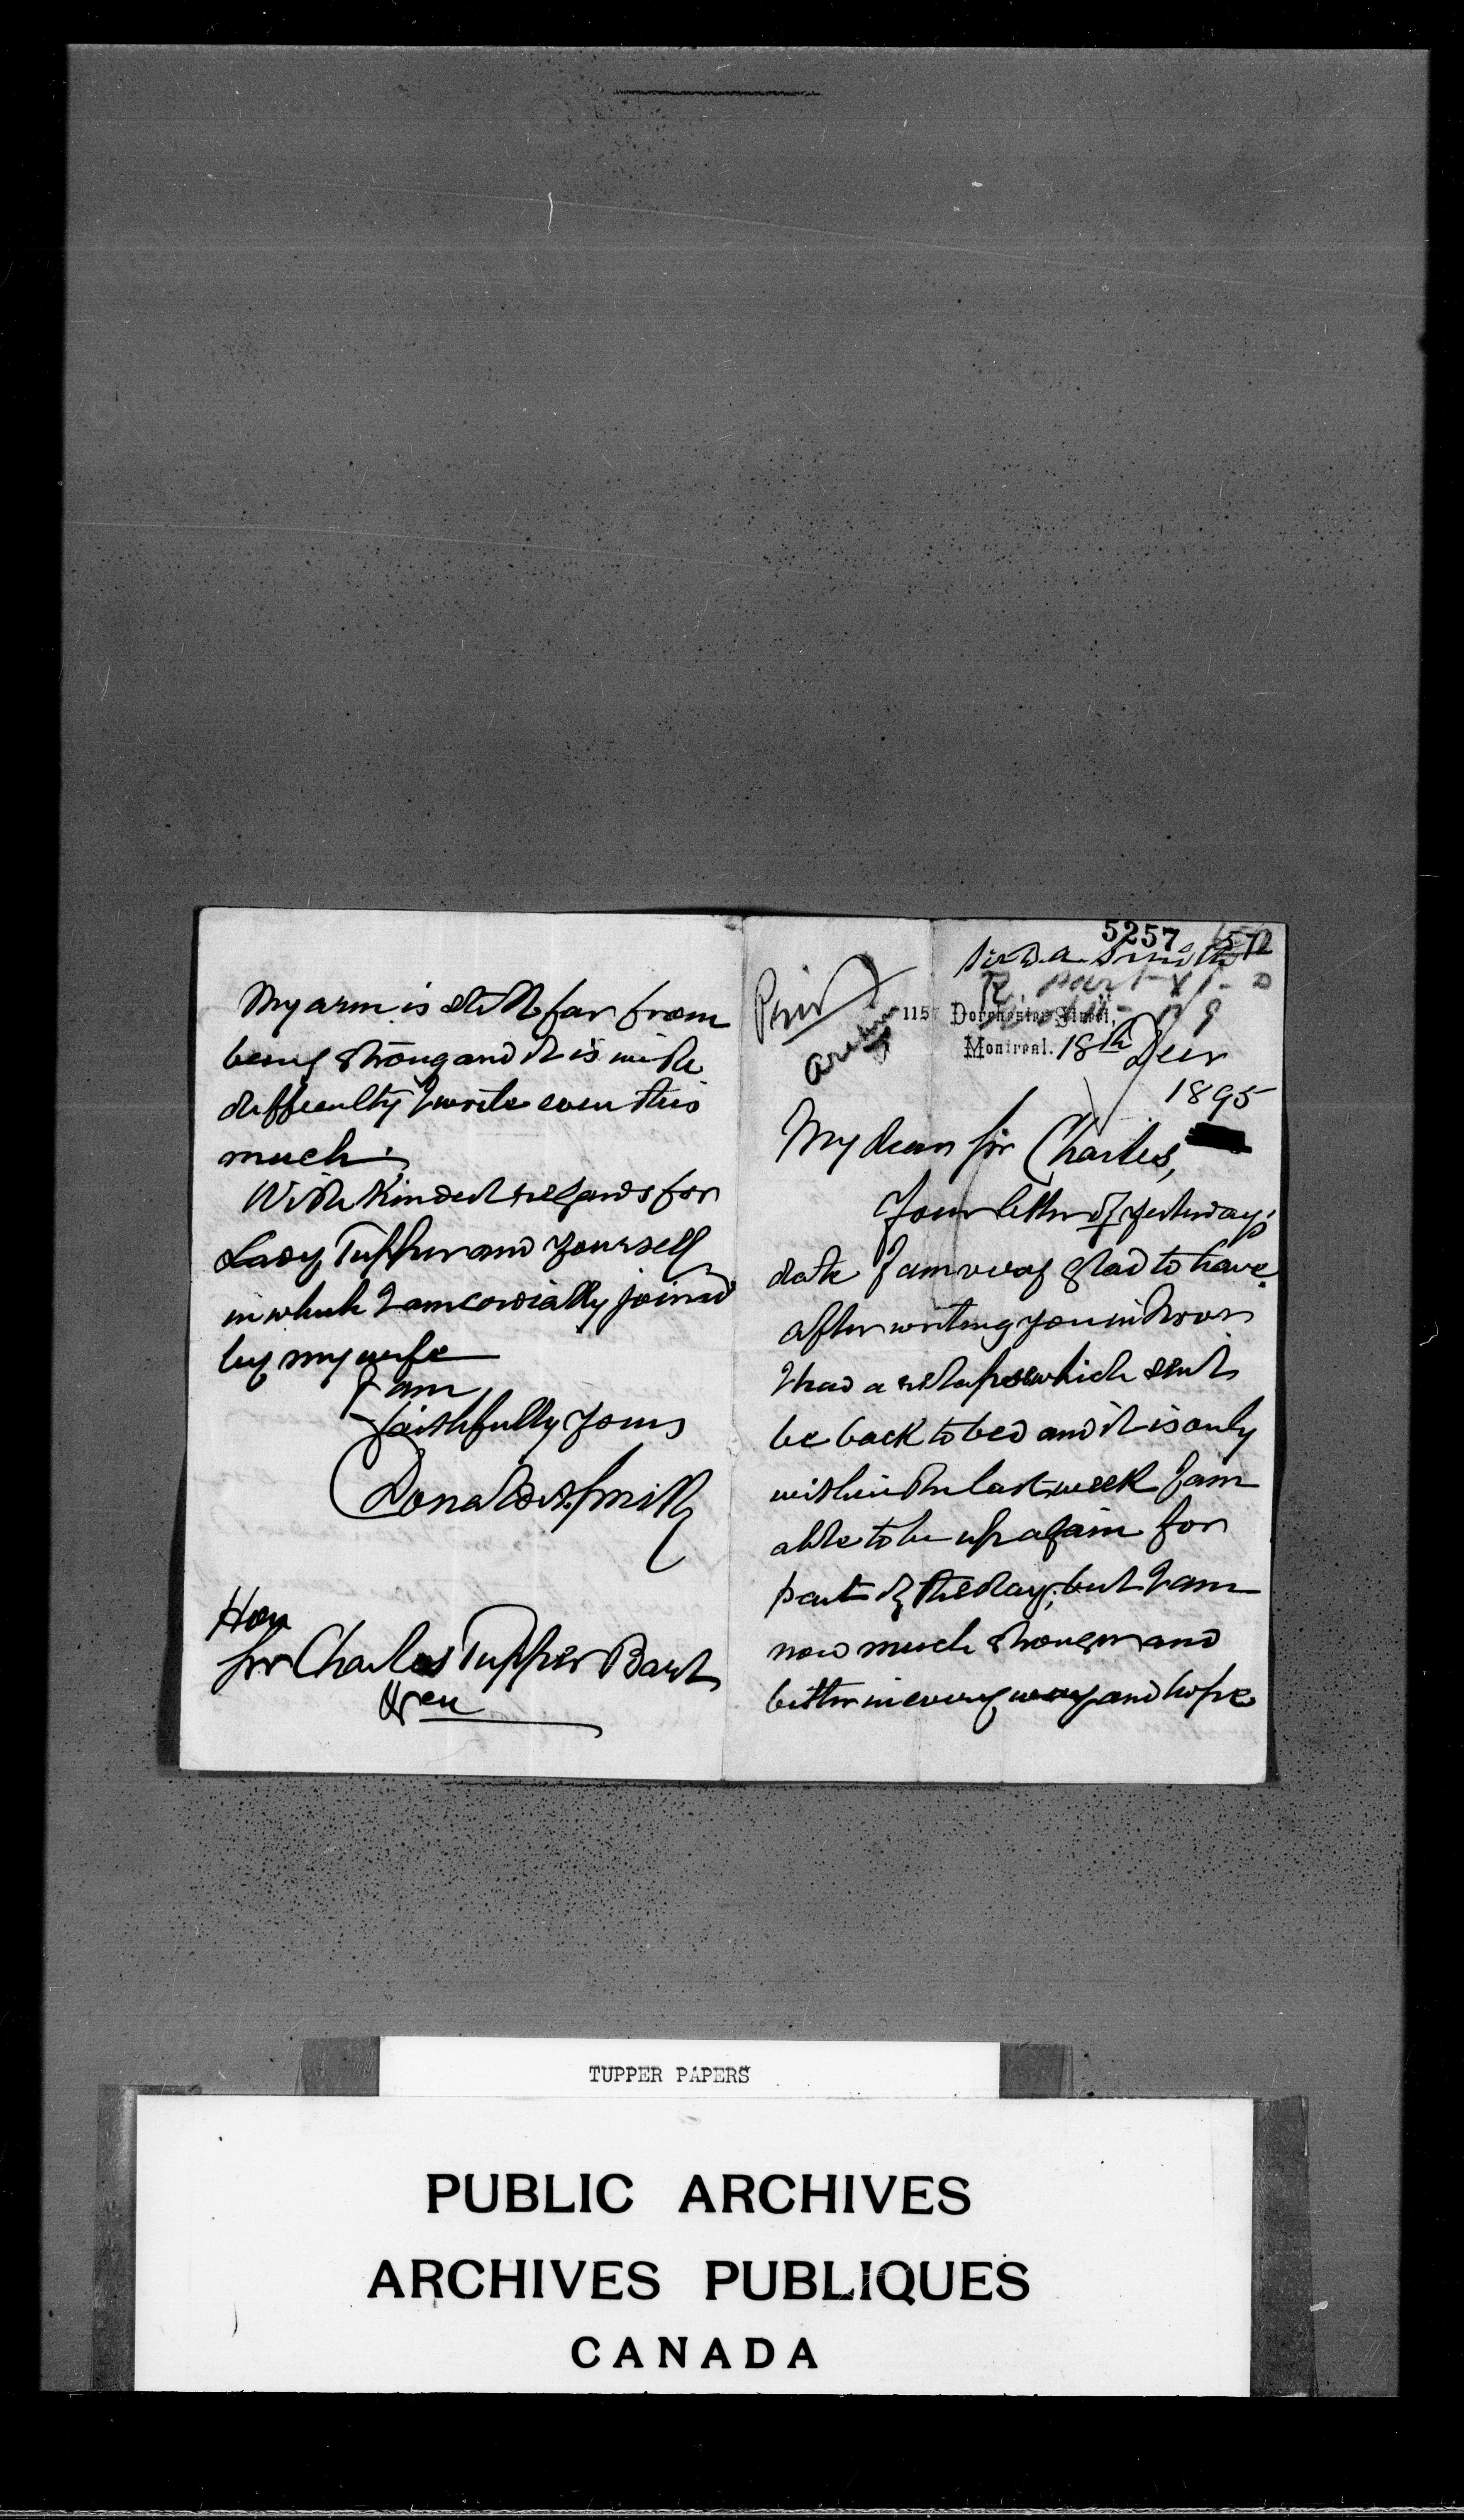 5257
572
Sir D. A. Smith
Priv
1157 Dorchester Street,
Montreal. 18th Decr
1895
My dear Sir Charles,
Your letter of yesterday's
date I am very glad to have.
After writing you in Novr
I had a relapse which sent
be back to bed and it is only
within the last week I am
able to be up again for
part of the day; but I am
now much stronger and
better in every way and hope
My arm is still far from
being strong and it is with
difficulty I write even this
much.
With kindest regards for
Lady Tupper and yourself
in which I am cordially joined
by my wife
I am,
faithfully yours
Donald A. Smith
Hon
Sir Charles Tupper Bart
TUPPER PAPERS
PUBLIC ARCHIVES
ARCHIVES PUBLIQUES
CANADA